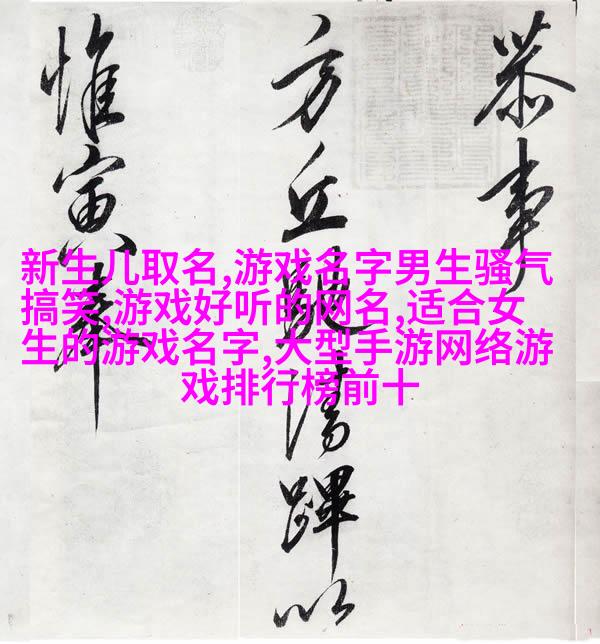 恭事
方丘清蹕以
惟寅奉
新生儿取名,游戏名字男生骚气
搞笑,游戏好听的网名,适合女
生的游戏名字,大型手游网络游
戏排行榜前十